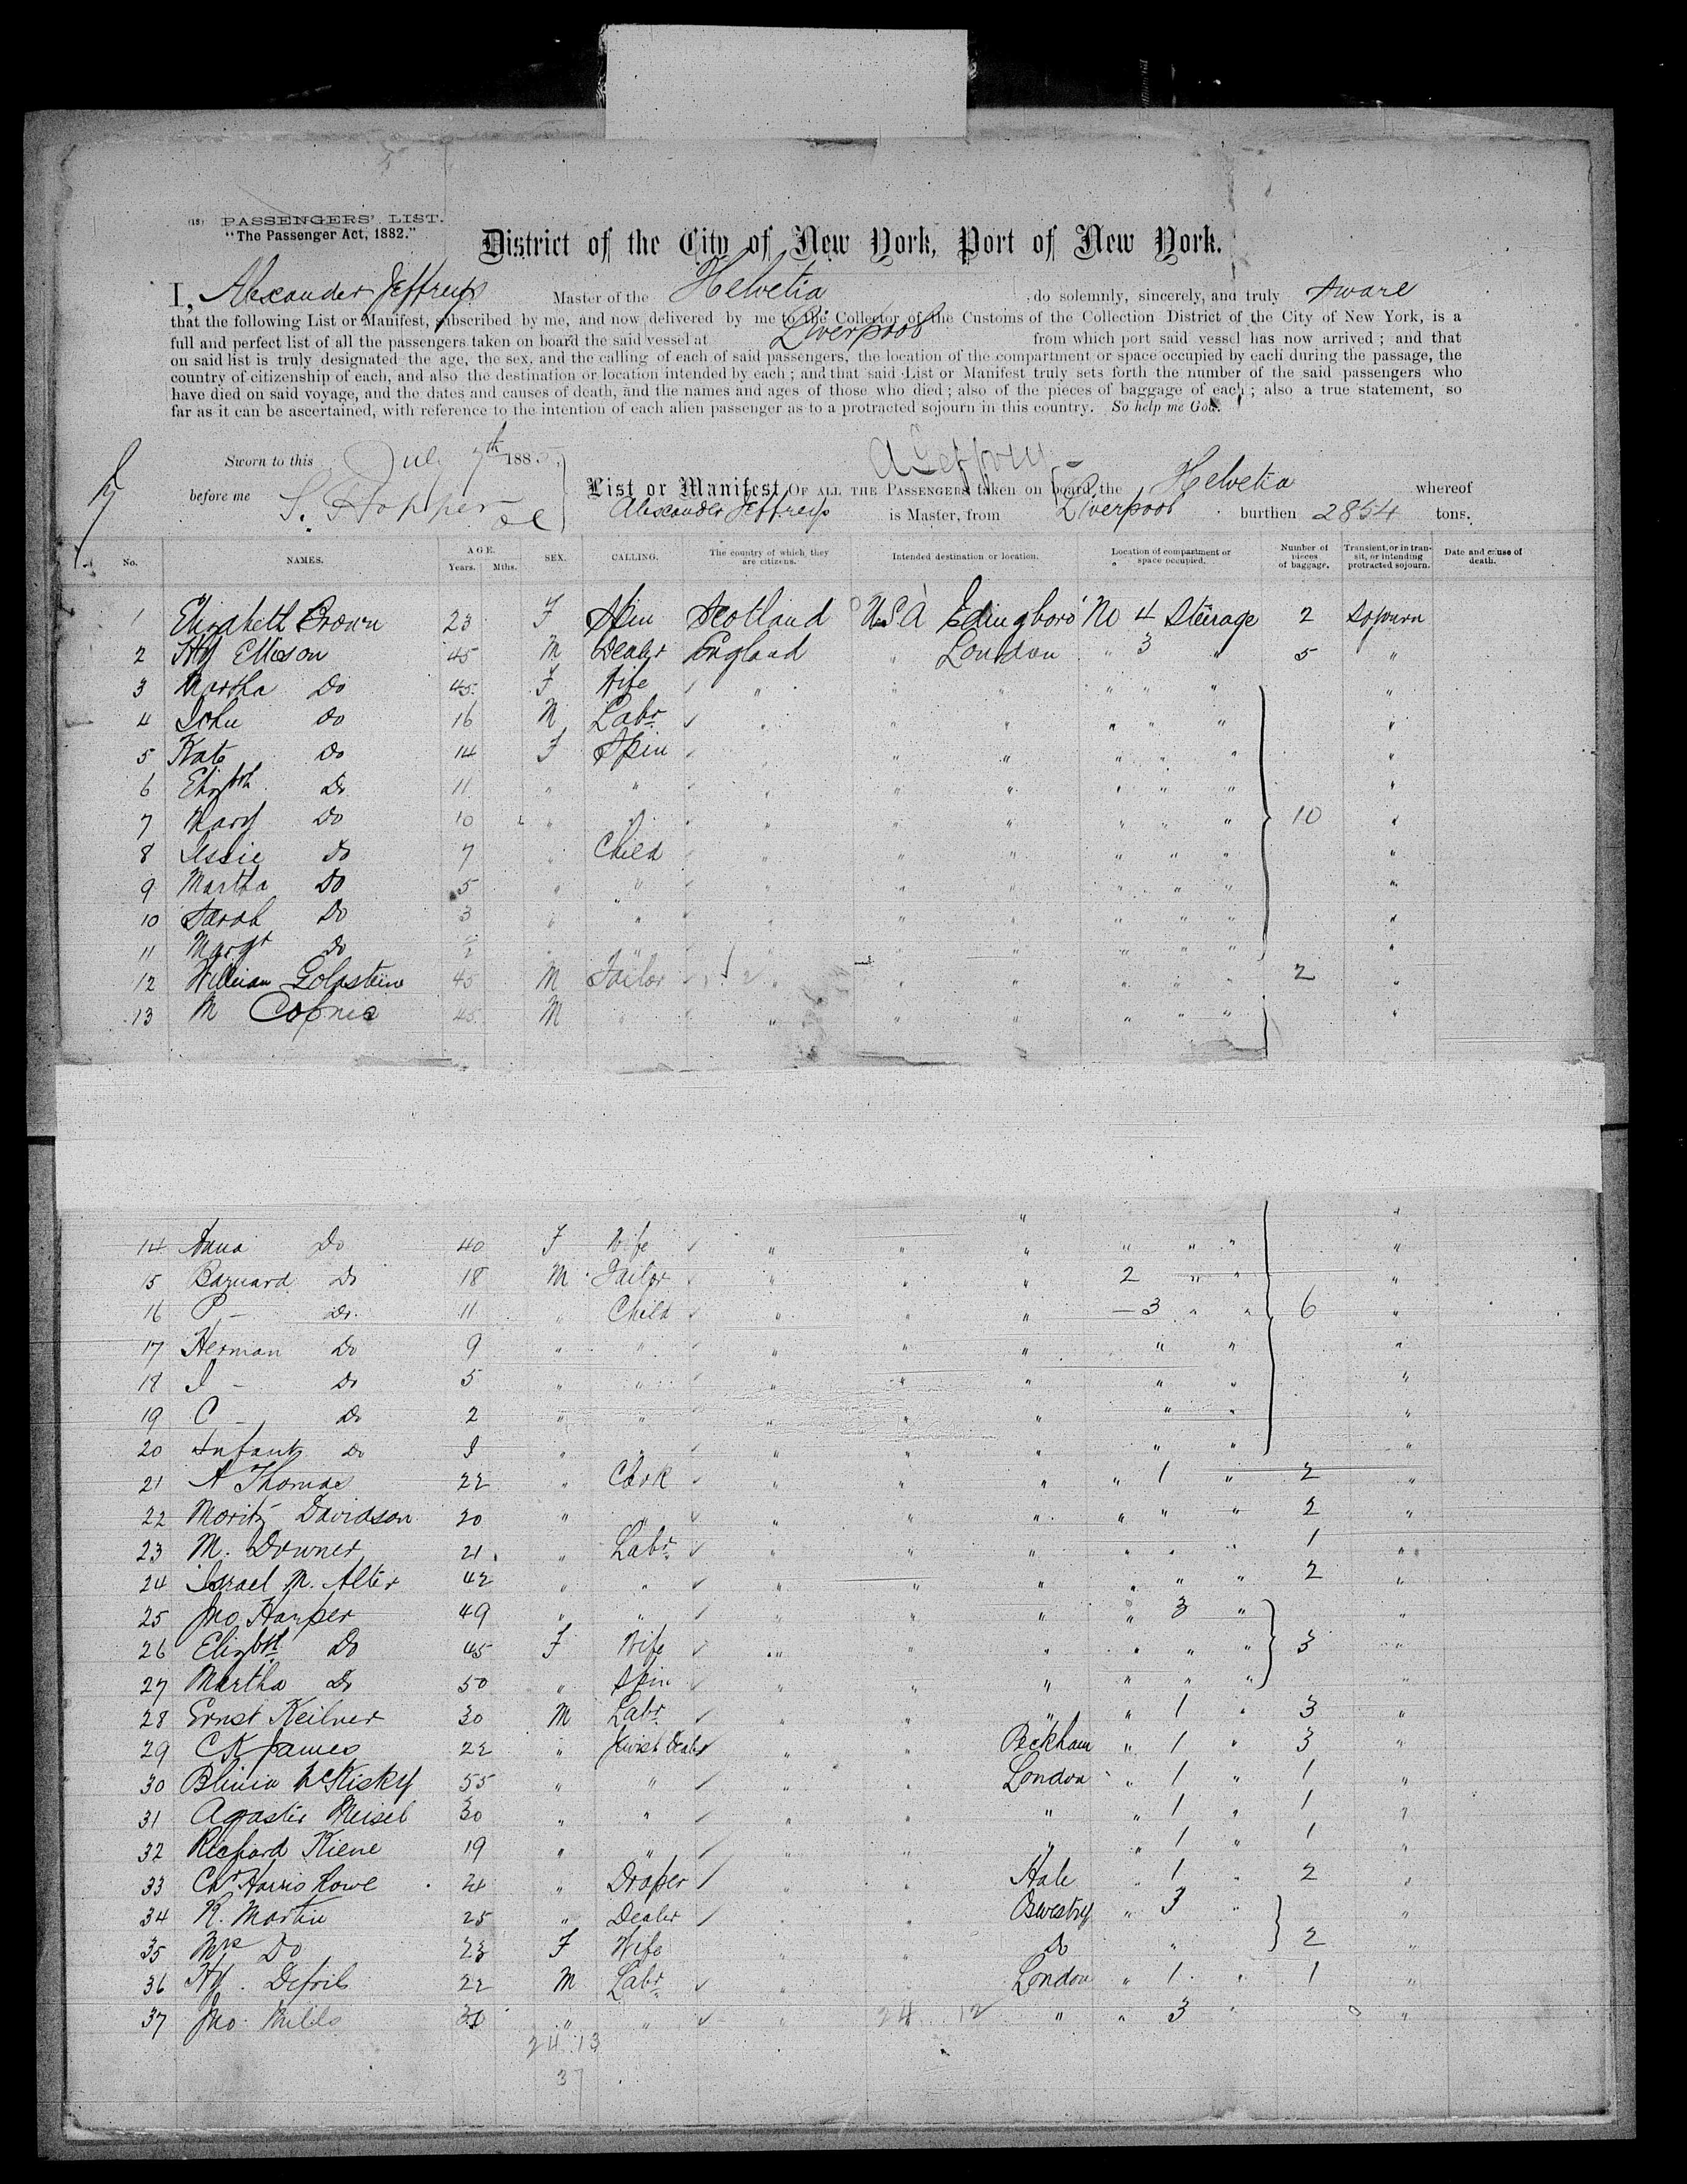 (18) PASSENGERS' LIST.
"The Passenger Act, 1882."
District of the City of New York, Port of New York.
I, Alexander Jeffreys Master of the Helvetia do solemnly, sincerely, and truly Sware
that the following List or Manifest, subscribed by me, and now delivered by me to the Collector of the Customs of the Collection District of the City of New York, is a
full and perfect list of all the passengers taken on board the said vessel at Liverpool from which port said vessel has now arrived; and that
on said list is truly designated the age, the sex, and the calling of each of said passengers, the location of the compartment or space occupied by each during the passage, the
country of citizenship of each, and also the destination or location intended by each; and that said List or Manifest truly sets forth the number of the said passengers who
have died on said voyage, and the dates and causes of death, and the names and ages of those who died; also of the pieces of baggage of each; also a true statement, so
far as it can be ascertained, with reference to the intention of each alien passenger as to a protracted sojourn in this country. So help me God.
Sworn to this July 7th 1885 A Jeffrey
before me S. Hopper
List or Manifest OF ALL THE PASSENGERS taken on board the Helvetia whereof
Alexander Jeffreys is Master, from Liverpool burthen 2854 tons.
No. NAMES. AGE. Years. Mths. SEX. CALLING. The country of which they are citizens. Intended destination or location. Location of compartment or space occupied. Number of pieces of baggage. Transient, or in transit, or intending protracted sojourn. Date and cause of death.
1 Elizabeth Brown 23 F Spin Scotland U.S.A Edingboro' No 4 Steirage 2 Sojourn
2 Hy Ellison 45 M Dealer England " London " 3 " 5 "
3 Martha Do 45 F Wife " " " " " " "
4 John Do 16 M Labr " " " " " " "
5 Kate Do 14 F Spin " " " " " "
6 Elizbth Do 11 " " " " " " " " "
7 Mary Do 10 " " " " " " " " 10 "
8 Jessie Do 7 " Child " " " " " " "
9 Martha Do 5 " " " " " " " " "
10 Sarah Do 3 " " " " " " " " "
11 Margt Do " " " " " " "
12 William Golastein 45 M Tailor " " " " " " 2 "
13 M 45 M " " " " " " " "
"
14 Anna Do 40 F Wife " " " " " " "
15 Barnard Do 18 M Tailor " " " 2 " " "
16 P - Do 11 " Child " " " - 3 " " 6 "
17 Herman Do 9 " " " " " " " "
18 I - Do 5 " " " " " " " "
19 C - Do 2 " " " " " " " "
20 Infant Do " " " " " " " "
21 A Thomas 22 " Clerk " " " " 1 " 2 "
22 Moritz Davidson 20 " " " " " " " " 2 "
23 M. Downer 21 " Labr " " " " " " 1 "
24 Israel M. Alter 42 " " " " " " " " 2 "
25 Jno Harper 49 " " " " " " 3 " "
26 Elizbth Do 45 F Wife " " " " " " 3 "
27 Martha Do 50 " Spin " " " " " " "
28 Ernst Keilner 30 M Labr " " " " 1 " 3 "
29 C K James 22 " Dealer " " Peckham " 1 " 3 "
30 55 " " " London " 1 " 1 "
31 Meisel 30 " " " " " 1 " 1 "
32 Richard Kiene 19 " " " " " " 1 " 1 "
33 Harris Rowe 24 " Draper " " Hale " 1 " 2 "
34 R. Martin 25 " Dealer " " Oswestry " 3 " "
35 Mrs Do 23 F Wife " " Do " 2 "
36 Hy. 22 M Labr " London " 1 " 1 "
37 Jno Mills 30 " " " 24 12 " " 3 " "
24 13
37